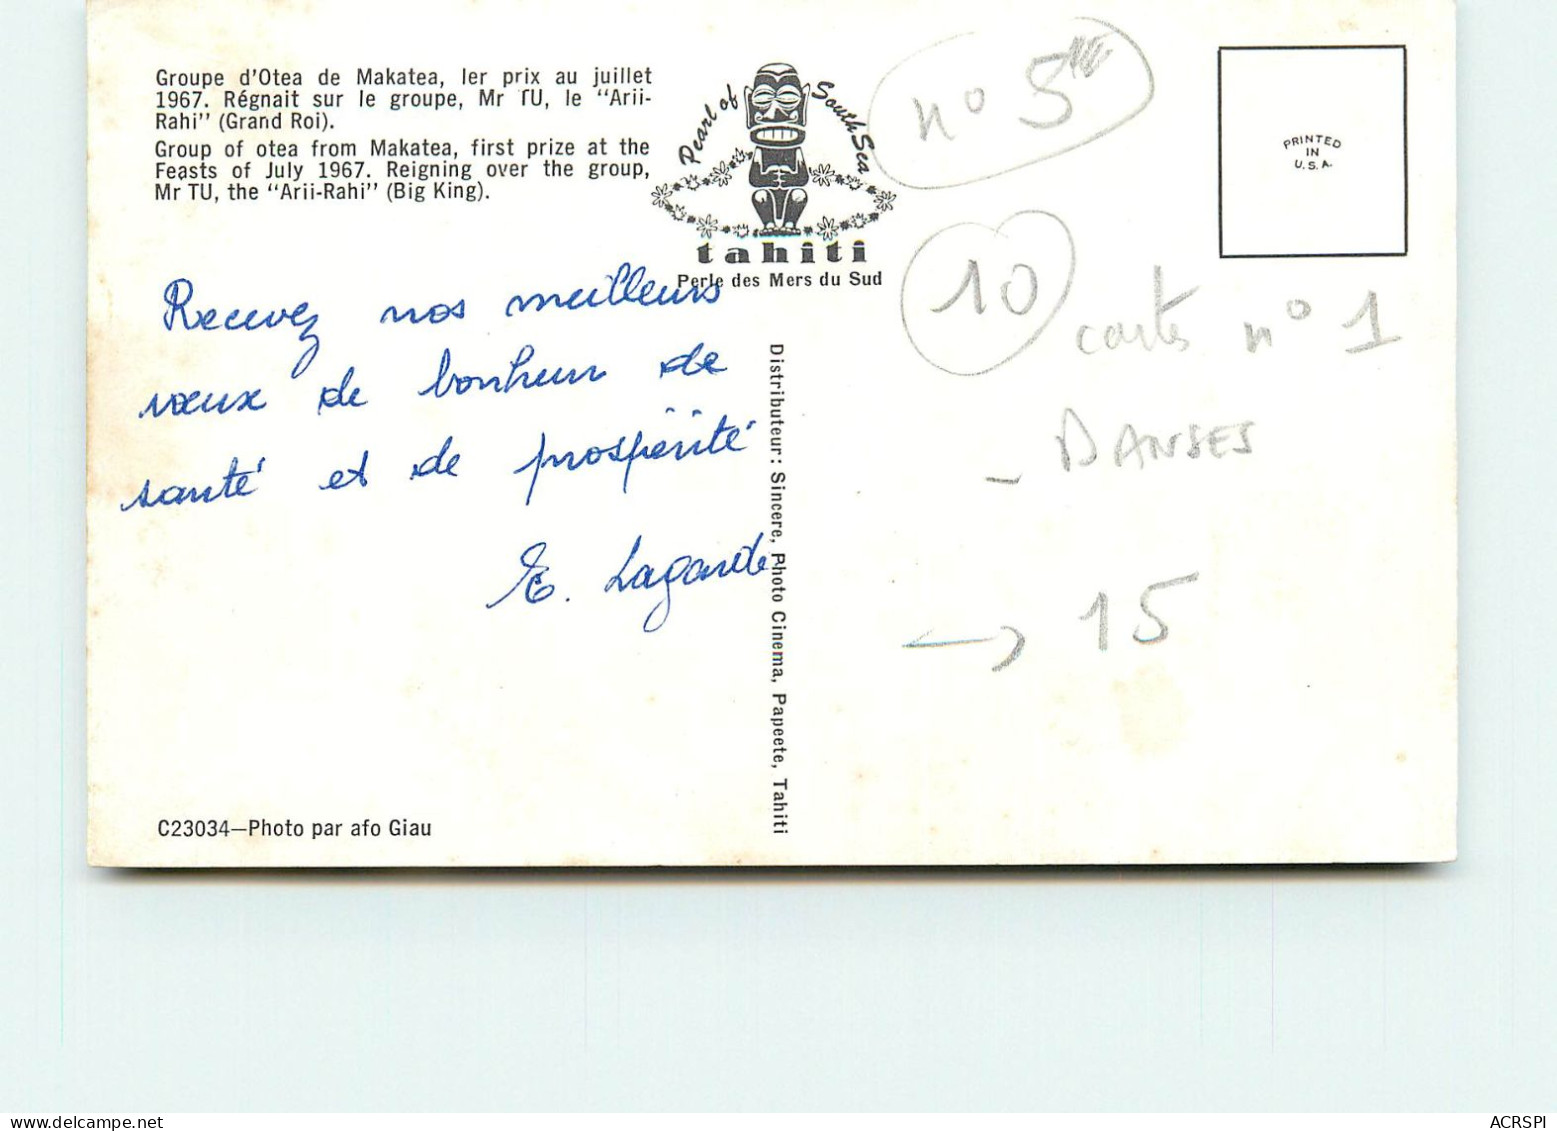 Groupe d'Otea de Makatea, 1er prix au juillet
1967. Régnait sur le groupe, Mr TU, le "Arii-
Rahi" (Grand Roi).
Group of otea from Makatea, first prize at the
Feasts of July 1967. Reigning over the group,
Mr TU, the "Arii-Rahi" (Big King).
Pearl of South Sea
tahiti
Perle des Mers du Sud
n° 5
PRINTED
IN
U.S.A.
10 cartes n° 1
- DANSES
15
Recevez nos meilleurs
vœux de bonheur de
santé et de prospérité
E. Lagarde
Distributeur: Sincere, Photo Cinema, Papeete, Tahiti
C23034—Photo par afo Giau
delcampe.net
ACRSPI